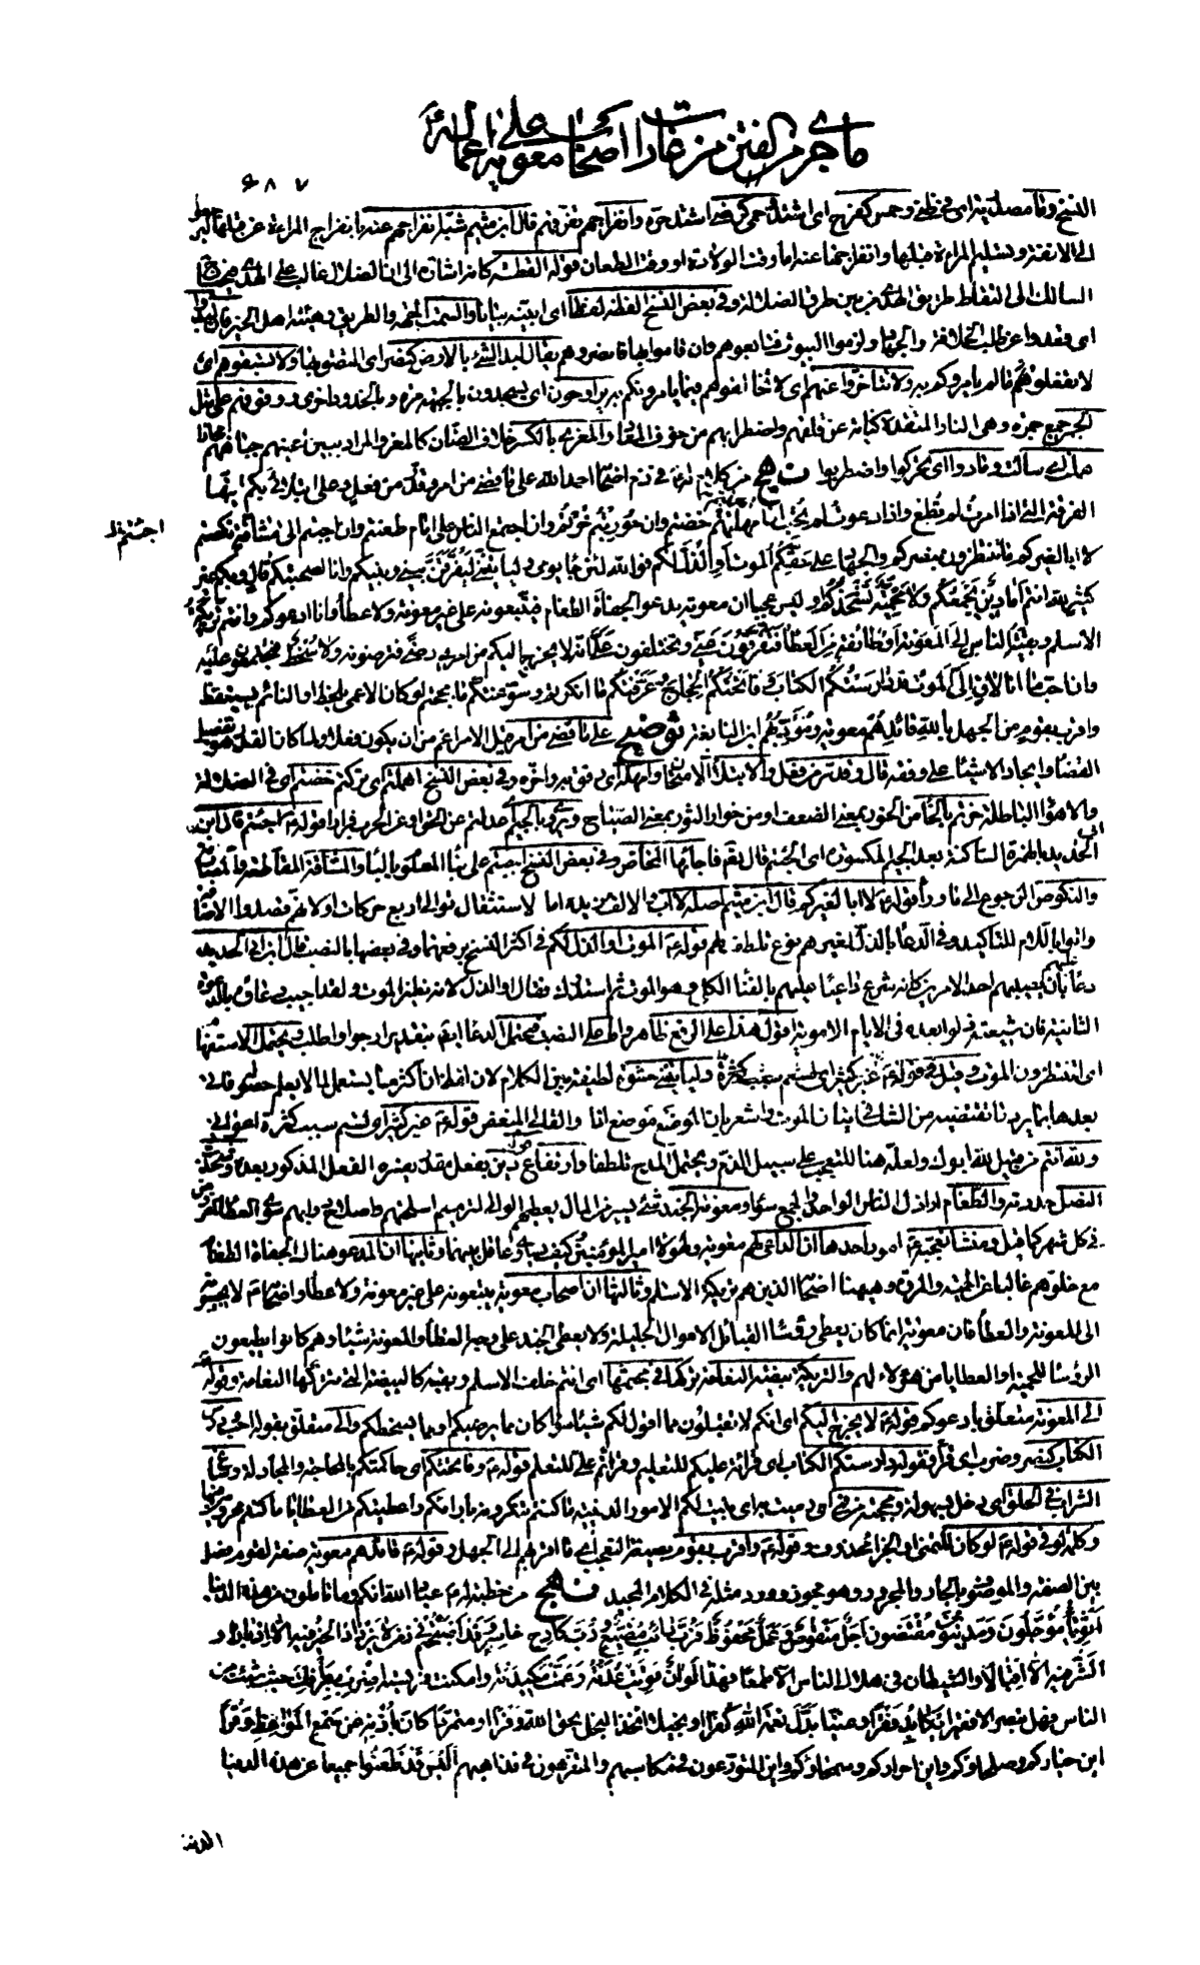 ما جرى من الفتن من غارات اصحاب معوية على اعماله
٦٨٧
النسخ وفا مصلتة اى فى نظر وحمس كفرح اى اشتد وحمى كرضى اشتد حره وانفراجهم تفرقهم قال ابن ميثم شبه انفراجهم عنه بانفراج المراة عن قبلها
الى الانفة وتسليم المراة قبلها وانفراجها عنه اما وقت الولادة او وقت الطعان قوله القطه كانه اشارة الى ان الضلال غالب على الهدى
السالك الى التقاط طريق الهدى من بين طرق الضلالة وفى بعض النسخ الفظه لفظا اى ابينه بيانا والسمت الجهة والطريق وهيئة اهل الخير فان لبدوا
اى قعدوا عن طلب الخلافة والجهاد ولزموا البيوت فتابعوهم وان قاموا بها فانصروهم يقال لبد الشئ بالارض كنصر اى لصق بها ولا تسبقوهم اى
لا تفعلوا ما لم يامروكم به ولا تتاخروا عنهم اى لا تخالفوهم فيما يامرونكم به يراوحون اى يسجدون بالجبهة مرة وبالخدود اخرى ووقوفهم على مثل
الجمر جمع جمرة وهى النار المتقدة كناية عن قلقهم واضطرابهم من خوف المعاد والمعزى بالكسر خلاف الضان كالمعز والمراد بين اعينهم جباههم مجازا
هملت اى سالت ومادوا اى تحركوا واضطربوا نهج من كلام له ع فى ذم اصحابه احمد الله على ما قضى من امر وقدر من فعل وعلى ابتلائى بكم ايتها
الفرقة التى اذا امرت لم تطع واذا دعوت لم تجب ان امهلتم خضتم وان حوربتم خرتم وان اجتمع الناس على امام طعنتم وان اجئتم الى مشاقة نكصتم
اجئتم ظ
لا ابا لغيركم ما تنتظرون بنصركم والجهاد على حقكم الموت او الذل لكم فوالله لئن جاء يومى ولياتينى ليفرقن بينى وبينكم وانا لصحبتكم قال وبكم غير
كثير لله انتم اما دين يجمعكم ولا حمية تشحذكم اوليس عجبا ان معوية يدعو الجفاة الطغام فيتبعونه على غير معونة ولا عطاء وانا ادعوكم وانتم تريكة
الاسلام وبقية الناس الى المعونة او طائفة من العطاء فتفرقون عنى وتختلفون على انه لا يخرج اليكم من امرى رضى فترضونه ولا سخط فتجتمعون عليه
وان احب ما انا لاق الى الموت قد دارستكم الكتاب وفاتحتكم الحجاج وعرفتكم ما انكرتم وسوغتكم ما مججتم لو كان الاعمى يلحظ او النائم يستيقظ
واقرب بقوم من الجهل بالله قائدهم معوية ومؤدبهم ابن النابغة توضيح على ما قضى من امر قيل الامر اعم من ان يكون فعلا ولما كان القدر هو تفصيل
القضاء وايجاد الاشياء على وفقه قال وقدر من فعل والابتلاء الامتحان وامهله اى رفق به واخره وفى بعض النسخ اهملتم اى تركتم خضتم اى فى الضلالة
والاهواء الباطلة خرتم بالخاء من الخور بمعنى الضعف او من خوار الثور بمعنى الصياح ويروى بالجيم اى عدلتم عن الحق او عن الحرب فرارا قوله ع اجئتم قال ابن ابى
الحديد بالهمزة الساكنة بعد الجيم المكسورة اى الجئتم قال تعالى فاجاءها المخاض وفى بعض النسخ اجبتم على بناء المعلوم بالباء والمشاقة المقاطعة
والنكوص الرجوع الى ما وراء قوله ع لا ابا لغيركم قال ابن ميثم اصله لا اب والالف مزيدة اما لاستثقال توالى اربع حركات او لانهم قصدوا الاضافة
واتوا باللام للتاكيد وفى الدعاء بالذل لغيرهم نوع تلطف لهم قوله ع الموت او الذل لكم فى اكثر النسخ برفعهما وفى بعضها بالنصب قال ابن ابى الحديد
دعاء عليهم بان يصيبهم احد الامرين كانه شرع داعيا عليهم بالفناء الكلى وهو الموت ثم استدرك فقال او الذل لانه نظير الموت ولقد اجيب دعاؤه بالدعوة
الثانية فان شيعته ذلوا بعده فى الايام الاموية اقول هذا على الرفع ظاهر واما على النصب فيحتمل الدعاء ايضا بتقدير ارجو او اطلب ويحتمل الاستفهام
اى اتنتظرون الموت وقيل فى قوله ع غير كثير اى لستم سبب كثرة ولياتينى حشوة لطيفة بين الكلام لان لفظة ان اكثر ما يستعمل لما لا يعلم حصوله فاتى
بعدها بما يرد ما تقتضيه من الشك فى اتيان الموت واشعر بان الموضع موضع اذا والقالى المبغض قوله ع غير كثير اى لستم سبب كثرة اعوانى
ولله انتم من قبيل لله ابوك ولعله هنا للتعجب على سبيل الذم ويحتمل المدح تلطفا وارتفاع دين بفعل مقدر يفسره الفعل المذكور بعده وشحذت
النصل حددته والطغام اراذل الناس الواحد والجمع سواء ومعونة الجند شئ يسير من المال يعطيهم الوالى لترميم اسلحتهم واصلاح دوابهم سوى العطاء المفروض
فى كل شهر كما قيل ومنشا تعجبه ع امور احدها ان الداعى لهم معوية ولهؤلاء امير المؤمنين كيف يساوى عاقل بينهما وثانيها ان المدعو هنالك الجفاة الطغام
مع خلوهم غالبا عن الحمية والمروة وهيهنا اصحابه الذين هم تريكة الاسلام وثالثها ان اصحاب معوية يتبعونه على غير معونة ولا عطاء واصحابه ع لا يجيبونه
الى المعونة والعطاء فان معوية انما كان يعطى رؤساء القبائل الاموال الجليلة ولا يعطى الجند على وجه العطاء والمعونة شيئا وهم كانوا يطيعون
الرؤساء للحمية او العطايا من هؤلاء لهم والتريكة بيضة النعامة تتركها فى مجثمها اى انتم خلف الاسلام وبقيته كالبيضة التى تتركها النعامة وقوله
الى المعونة متعلق بادعوكم قوله ع لا يخرج اليكم اى انكم لا تقبلون مما اقول لكم شيئا سواء كان مما يرضيكم او مما يسخطكم والى متعلق بقوله احب
الكتاب كنصر وضرب اى قرأ فقوله دارستكم الكتاب اى قرات عليكم للتعليم وقراتم على للتعلم قوله ع وفاتحتكم اى حاكمتكم بالمحاجة والمجادلة وساغ
الشراب فى الحلق اى دخل بسهولة ومججته من فى اى رميت به اى بينت لكم الامور الدينية ما كنتم تنكرونه بارائكم واعطيتكم من العطايا ما كنتم محرومين عنها
وكلمة لو فى قوله ع لو كان للتمنى او الجزاء محذوف وقوله ع واقرب بقوم صيغة التعجب اى ما اقربهم الى الجهل وقوله ع قائدهم معوية صفة لقوم فصل
بين الصفة والموصوف بالجار والمجرور وهو مجوز وورد مثله فى الكلام المجيد نهج من خطبة له ع عباد الله انكم وما تاملون من هذه الدنيا
اثوياء مؤجلون ومدينون مقتضون اجل منقوص وعمل محفوظ فرب دائب مضيع ورب كادح خاسر قد اصبحتم فى زمن لا يزداد الخير فيه الا ادبارا و
الشر فيه الا اقبالا والشيطان فى هلاك الناس الا طمعا فهذا اوان قويت عدته وعمت مكيدته وامكنت فريسته اضرب بطرفك حيث شئت من
الناس فهل تبصر الا فقيرا يكابد فقرا او غنيا بدل نعمة الله كفرا او بخيلا اتخذ البخل بحق الله وفرا او متمردا كان باذنه عن سمع المواعظ وقرا
اين خياركم وصلحاؤكم واين احراركم وسمحاؤكم واين المتورعون فى مكاسبهم والمتنزهون فى مذاهبهم اليس قد ظعنوا جميعا عن هذه الدنيا
الدنية